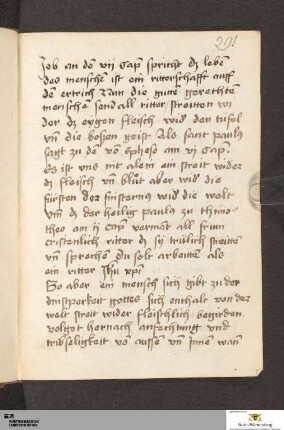 201
Job an dē vij Cap spricht dz leben
des menschē ist ein ritterschafft auff
dē ertrich Nun die gutē gerechtē
menschen send all ritter streitten wi
der dz eygen fleisch wid den tufel
vñ die boßen geist Als sant paulꝯ
sagt zu de vō Ephese am vj Cap
Es ist vns nit alein ein streit wider
dz fleisch vñ blůt aber wid die
fürsten der finsternus wid die welt
Vm̄ dz der heilig paulꝯ zu thimo-
theo am ij Cap vermāt all frum
cristenlich ritter dz sy trülich streitten
vñ sprechen du solt arbeittē als
ein ritter Jhū xp̄i
So aber ein mensch sich gibt zu der
dinstperkeit gottes sich enthalt von der
welt streit wider fleischlich begirden
volget hernach anfechtung vnd
trübseligkeit vō aussen vñ Jnnē wañ